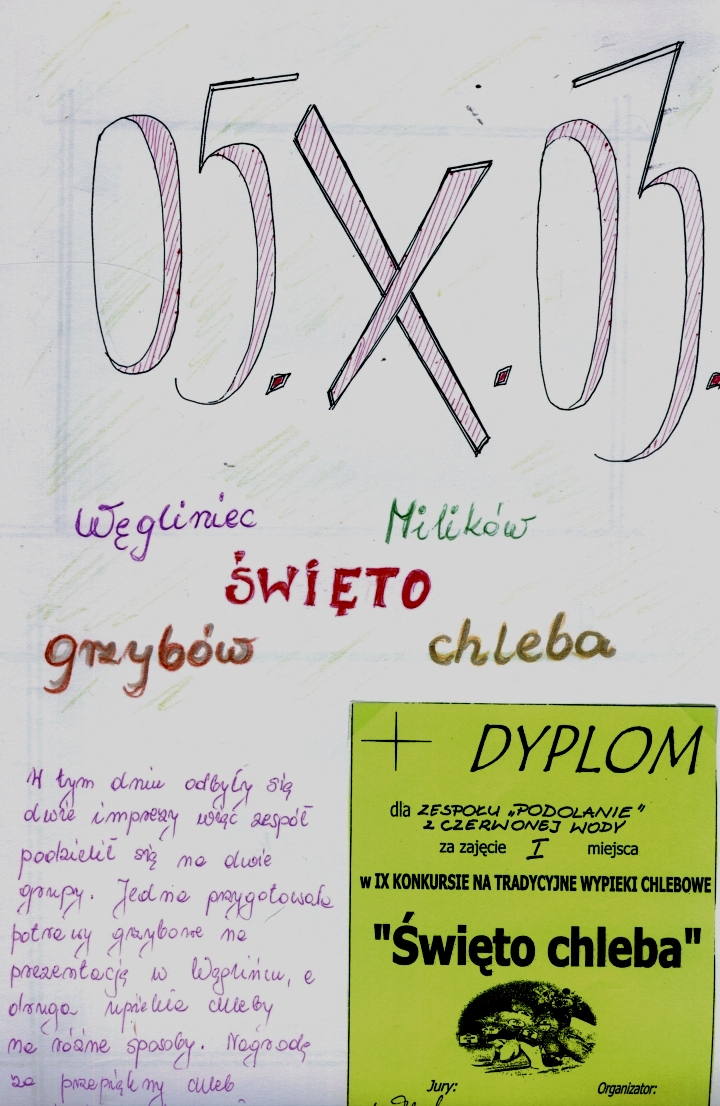 05.X.03.
Węgliniec Milików
ŚWIĘTO
grzybów chleba
W tym dniu odbyły się
dwie imprezy więc zespół
podzielił się na dwie
grupy. Jedna przygotowała
potrawy grzybowe na
prezentację w Węglińcu, a
druga upiekła chleby
na różne sposoby. Nagrodę
za przepiękny chleb
DYPLOM
dla ZESPOŁU „PODOLANIE"
Z CZERWONEJ WODY
za zajęcie I miejsca
w IX KONKURSIE NA TRADYCYJNE WYPIEKI CHLEBOWE
"Święto chleba"
Jury: Organizator: